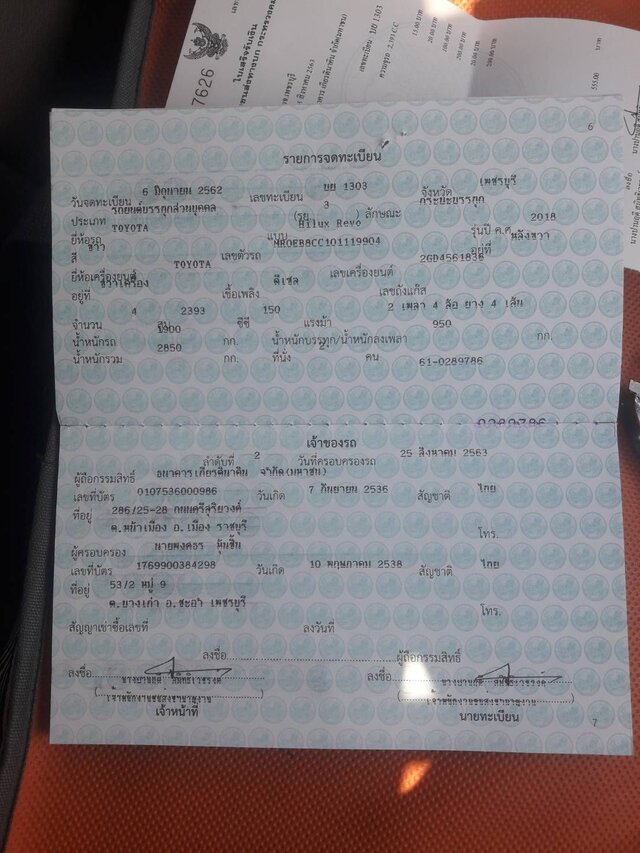 7626
ใบเสร็จรับเงิน
เลขทะเบียน บบ 1303
ความจุรวม 2,393 CC
15.00 บาท
20.00 บาท
100.00 บาท
20.00 บาท
200.00 บาท
555.00
บาท
6
รายการจดทะเบียน
วันจดทะเบียน 6 มิถุนายน 2562 เลขทะเบียน บย 1303 จังหวัด เพชรบุรี
ประเภท รถยนต์บรรทุกส่วนบุคคล (รย 3 ) ลักษณะ กระบะบรรทุก
ยี่ห้อรถ TOYOTA แบบ Hilux Revo รุ่นปี ค.ศ. 2018
สี ขาว เลขตัวรถ MR0EB8CC101119904 อยู่ที่
ยี่ห้อเครื่องยนต์ TOYOTA เลขเครื่องยนต์ 2GD4561836
อยู่ที่ ขวาเครื่อง เชื้อเพลิง ดีเซล เลขถังแก๊ส
จำนวน 4 สูบ 2393 ซีซี 150 แรงม้า 2 เพลา 4 ล้อ ยาง 4 เส้น
น้ำหนักรถ 1900 กก. น้ำหนักบรรทุก/น้ำหนักลงเพลา 950 กก.
น้ำหนักรวม 2850 กก. ที่นั่ง 2 คน 61-0289786
0289786
เจ้าของรถ
ลำดับที่ 2 วันที่ครอบครองรถ 25 สิงหาคม 2563
ผู้ถือกรรมสิทธิ์ ธนาคารเกียรตินาคิน จำกัด(มหาชน)
เลขที่บัตร 0107536000986 วันเกิด 7 กันยายน 2536 สัญชาติ ไทย
ที่อยู่ 286/25-28 ถนนศรีสุริยวงศ์
ต.หน้าเมือง อ.เมือง ราชบุรี โทร.
ผู้ครอบครอง นายพงศธร
เลขที่บัตร 1769900384298 วันเกิด 10 พฤษภาคม 2538 สัญชาติ ไทย
ที่อยู่ 53/2 หมู่ 9
ต.บางเก่า อ.ชะอำ เพชรบุรี โทร.
สัญญาเช่าซื้อเลขที่ ลงวันที่
ลงชื่อ ผู้ถือกรรมสิทธิ์
ลงชื่อ ลงชื่อ
เจ้าหน้าที่ นายทะเบียน
7